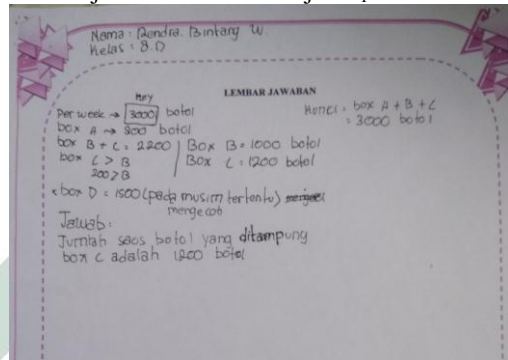 Nama : Rendra Bintang W
Kelas : 8.D
LEMBAR JAWABAN
Per week → 3000 botol
box A → 800 botol
box B + C = 2200
Box B = 1000 botol
box C > B
Box C = 1200 botol
200 > B
box A + B + C
= 3000 botol
box D = 1500 (pada musim tertentu)
mengecoh
Jawab :
Jumlah saos botol yang ditampung
box C adalah 1200 botol